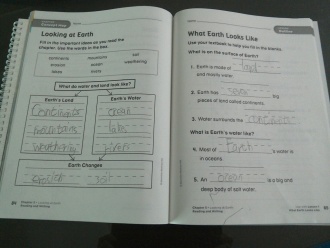 Looking at Earth
Fill in the important ideas as you read the
chapter. Use the words in the box.
continents mountains soil
erosion ocean weathering
lakes rivers
What do water and land look like?
Earth's Land
Earth's Water
Continents
ocean
mountains
lake
weathering
rivers
Earth Changes
erosion soil
84
Reading and Writing
What Earth Looks Like
Use your textbook to help you fill in the blanks.
What is on the surface of Earth?
1. Earth is made of land
and mostly water.
2. Earth has seven big
pieces of land called continents.
3. Water surrounds the continents
What is Earth's water like?
4. Most of Earth's water is
in oceans.
5. An ocean is a big and
deep body of salt water.
Reading and Writing
85